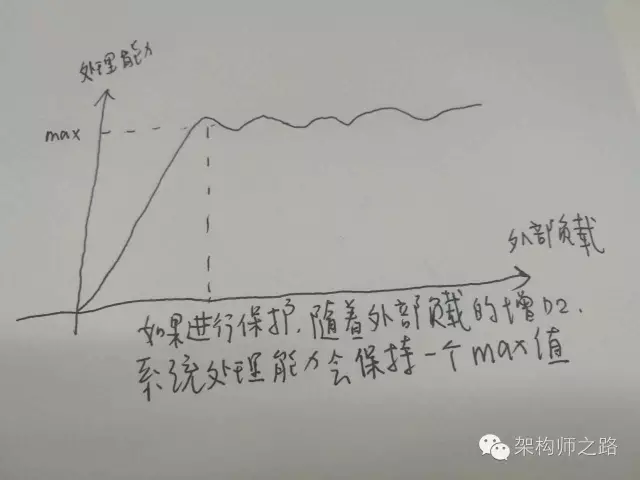 处理能力
max
外部负载
如果进行保护,随着外部负载的增加,
系统处理能力会保持一个max值
架构师之路